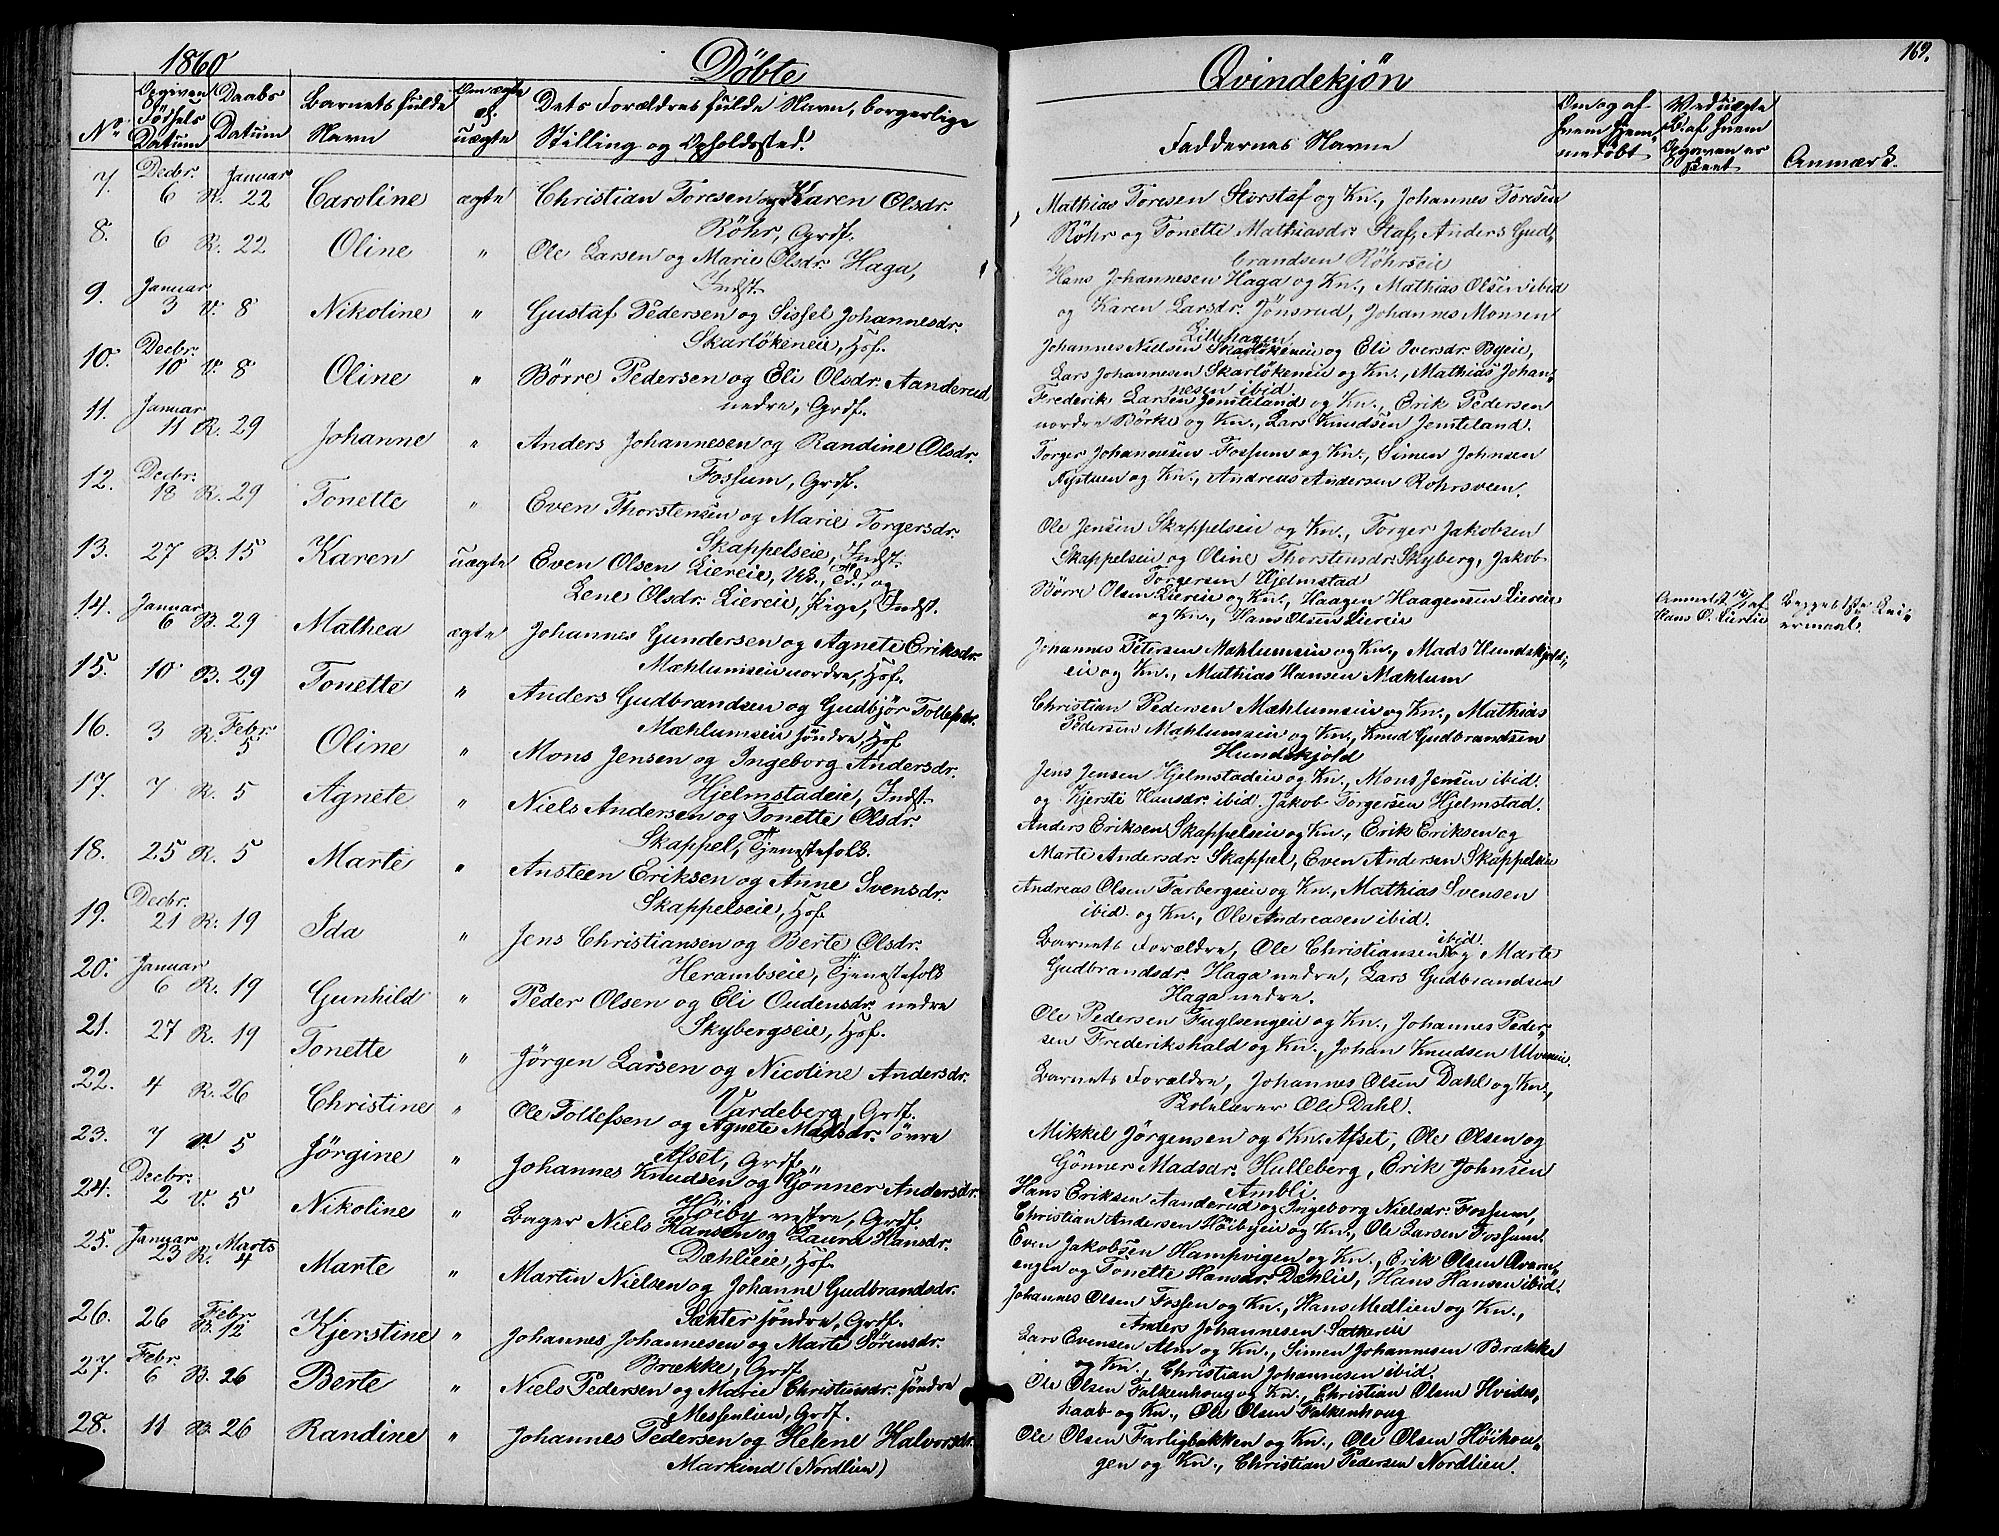 1860 Döbte Qvindekjön 169.
No. Opgiven Födsels Datum Daabs Datum Barnets fulde Navn Om ægte el. uægte Dets Forældres fulde Navn, borgerlige Stilling og Opholdssted. Faddernes Navne Om og af hvem hjemmedöbt Ved uægte B. af hvem Opgaven er skeet Anmærk.
7. Decbr. 6 R. Januar 22 Caroline ægte Christian Toresen og Karen Olsdr.
Röhr, Grdf.
Mathias Toresen Storstaf og Kn., Johannes Toresen
Röhr og Tonette Mathiasdr. Staf, Anders Gud-
brandsen Röhrseie
8. 6 R. 22 Oline " Ole Larsen og Marie Olsdr. Haga,
Indst.
Hans Johannesen Haga og Kn., Mathias Olsen ibid
og Karen Larsdr. Jönsrud, Johannes Monsen
Lillehagen
9. Januar 3 V. 8 Nikoline " Gustaf Pedersen og Sissel Johannesdr.
Skarlökeneie, Hof.
Johannes Nielsen Skarlökeneie og Eli Iversdr. Byeie,
Lars Johannesen Skarlökeneie og Kn., Mathias Johan-
nesen ibid
10. Decbr. 10 V. 8 Oline " Börre Pedersen og Eli Olsdr. Aanderud
nedre, Grdf.
Frederik Larsen Jemteland og Kn., Erik Pedersen
nordre Börke og Kn., Lars Knudsen Jemteland.
11. Januar 11 R. 29 Johanne " Anders Johannesen og Randine Olsdr.
Fossum, Grdf.
Torger Johannesen Fossum og Kn., Simen Johnsen
Nystuen og Kn., Andreas Andersen Rohrsveen.
12. Decbr. 18 R. 29 Tonette " Even Thorstensen og Marie Torgersdr.
Skappelseie, Indst.
Ole Jensen Skappelseie og Kn., Torger Jakobsen
Skappelseie og Oline Thorstensdr. Skyberg, Jakob
Torgersen Hjelmstad
13. 27 B. 15 Karen uægte Even Olsen Liereie, Uk., Td., og
Lene Olsdr. Liereie, Pige, Indst.
Börre Olsen Liereie og Kn., Haagen Haagensen Liereie
og Kn., Hans Olsen Liereie
Anmeldt af
Hans O. Lierie
Begges 1ste Lei-
ermaal.
14. Januar 6 B. 29 Mathea ægte Johannes Gundersen og Agnete Eriksdr.
Mæhlumseie nordre, Hof.
Johannes Petersen Mæhlumseie og Kn., Mads Hundskjold-
eie og Kn., Mathias Hansen Mæhlum
15. 10 B. 29 Tonette " Anders Gudbrandsen og Gudbjör Tollefsdr.
Mæhlumseie söndre Hof
Christian Pedersen Mæhlumseie og Kn., Mathias
Pedersen Mæhlumseie og Kn., Knud Gudbrandsen
Hundskjold
16. 3 R. Febr. 5 Oline " Mons Jensen og Ingeborg Andersdr.
Hjelmstadeie, Indst.
Jens Jensen Hjelmstadeie og Kn., Mons Jensen ibid.
og Kjersti Hansdr. ibid. Jakob Torgersen Hjelmstad.
17. 7 R. 5 Agnete " Niels Andersen og Tonette Olsdr.
Skappel, Tjenestefolk.
Anders Eriksen Skappelseie og Kn., Erik Eriksen og
Marte Andersdr. Skappel, Even Andersen Skappelseie
18. 25 R. 5 Marte " Ansteen Eriksen og Anne Svensdr.
Skappelseie, Hof.
Andreas Olsen Farbergseie og Kn., Mathias Svensen
ibid. og Kn., Ole Andreasen ibid.
19. Decbr. 21 R. 19 Ida " Jens Christiansen og Berte Olsdr.
Herambseie, Tjenestefolk
Barnets Forældre, Ole Christiansen ibid. og Marte
Gudbrandsdr. Haga nedre, Lars Gudbrandsen
Haga nedre.
20. Januar 6 R. 19 Gunhild " Peder Olsen og Eli Oudensdr. nedre
Skybergseie, Hof.
Ole Pedersen Fuglsengeie og Kn., Johannes Peder-
sen Frederikshald og Kn., Johan Knudsen Ulveneie.
21. 27 R. 19 Tonette " Jörgen Larsen og Nicoline Andersdr.
Vardeberg, Grdf.
Barnets Forældre, Johannes Olsen Dahl og Kn.,
Skolelærer Ole Dahl.
22. 4 R. 26 Christine " Ole Tollefsen og Agnete Madsdr. övre
Afset, Grdf.
Mikkel Jörgensen og Kn. Afset, Ole Olsen og
Gönner Madsdr. Hulleberg, Erik Johnsen
Ambli.
23. 7 V. 5 Jörgine " Johannes Knudsen og Gönner Andersdr.
Höiby vestre, Grdf.
Hans Eriksen Aanderud og Ingeborg Nielsdr. Fossum,
Christian Andersen Höibyeie og Kn., Ole Larsen Fossum.
24. Decbr. 2 V. 5 Nikoline " Bager Niels Hansen og Laura Hansdr.
Dæhlieie, Hof.
Even Jakobsen Hampvigen og Kn., Erik Olsen Qvern-
engen og Tonette Hansdr. Dæhlie, Hans Hansen ibid.
25. Januar 23 R. Marts 4 Marte " Martin Nielsen og Johanne Gudbrandsdr.
Sæhter söndre, Grdf.
Johannes Olsen Fossen og Kn., Hans Medlien og Kn.,
Anders Johannesen Sætereie
26. 26 B. Febr. 12 Kjerstine " Johannes Johannesen og Marte Sörensdr.
Brække, Grdf.
Lars Evensen Alm og Kn., Simen Johannesen Brække
og Kn., Christian Johannesen ibid.
27. Febr. 6 B. 26 Berte " Niels Pedersen og Marie Christiansdr. söndre
Messenlien, Grdf.
Ole Olsen Falkenhoug og Kn., Christian Olsen Hvides-
haab og Kn., Ole Olsen Falkenhoug
28. 11 B. 26 Randine " Johannes Pedersen og Helene Halvorsdr.
Markind (Nordlien)
Ole Olsen Farligbakken og Kn., Ole Olsen Höikou-
gen og Kn., Christian Pedersen Nordlien.